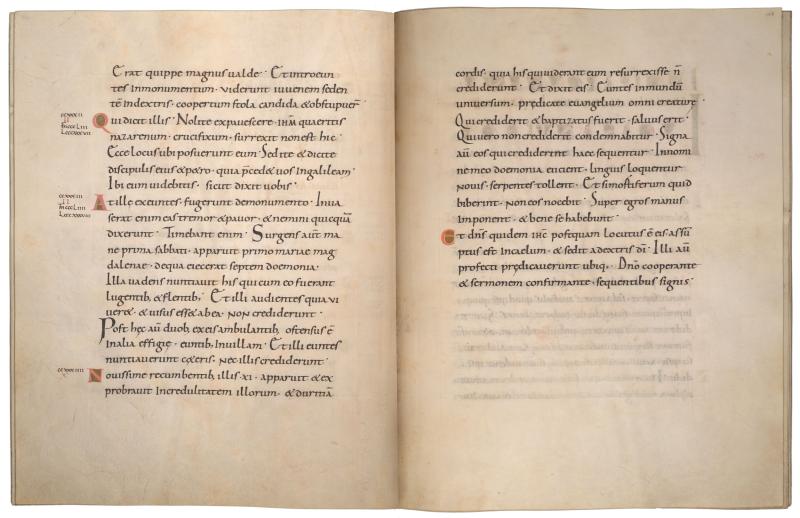 Erat quippe magnus ualde · Et introeun
tes in monumentum · viderunt iuvenem seden
tē in dextris · coopertum stola candida & obstupuer̄
Qui dicit illis · Nolite expavescere · ihm̄ quaeritis
nazarenum · crucifixum · surrexit non est hic ·
Ecce locus ubi posuerunt eum · Sed ite & dicite
discipulis eius & p&ro · quia p̄ced& uos in galileam ·
Ibi eum videbitis · sicut dixit vobis ·
At ille exeuntes · fugerunt de monumento · Inva
serat enim eas tremor & pavor · & nemini quicquā
dixerunt · Timebant enim · Surgens aūt ma
ne prima sabbati · apparuit primo mariae mag
dalenae · de qua eiecerat septem doemonia ·
Illa vadens nuntiavit his qui cum eo fuerant
lugentib; & flentib; · Et illi audientes quia vi
ver& · & visus ess& ab ea · non crediderunt ·
Post hec aū duob; ex eis ambulantib; ostensus ē
In alia effigie · euntib; in villam · Et illi euntes
nuntiaverunt c&eris · nec illis crediderunt ·
Novissime recumbentib; illis · xi · apparuit & ex
probravit incredulitatem illorum · & duritiā
cordis · quia his qui viderant eum resurrexisse n̄
crediderunt · Et dixit eis · Euntes in mundū
universum · predicate evangelium omni creature ·
Qui crediderit & baptizatus fuerit · salvus erit ·
Qui vero non crediderit condemnabitur · Signa
aū eos qui crediderint haec sequentur · In nomi
ne meo doemonia eicient · linguis loquentur
novis · serpentes tollent · Et si mortiferum quid
biberint · non eos nocebit · Super egros manus
imponent · & bene se habebunt ·
Et dn̄s quidem ih̄c postquam locutus ē eis assū
ptus est in caelum · & sedit a dextris dī · Illi aū
profecti predicaverunt ubiq; · Dn̄o cooperante
& sermonem confirmante · sequentibus signis ·